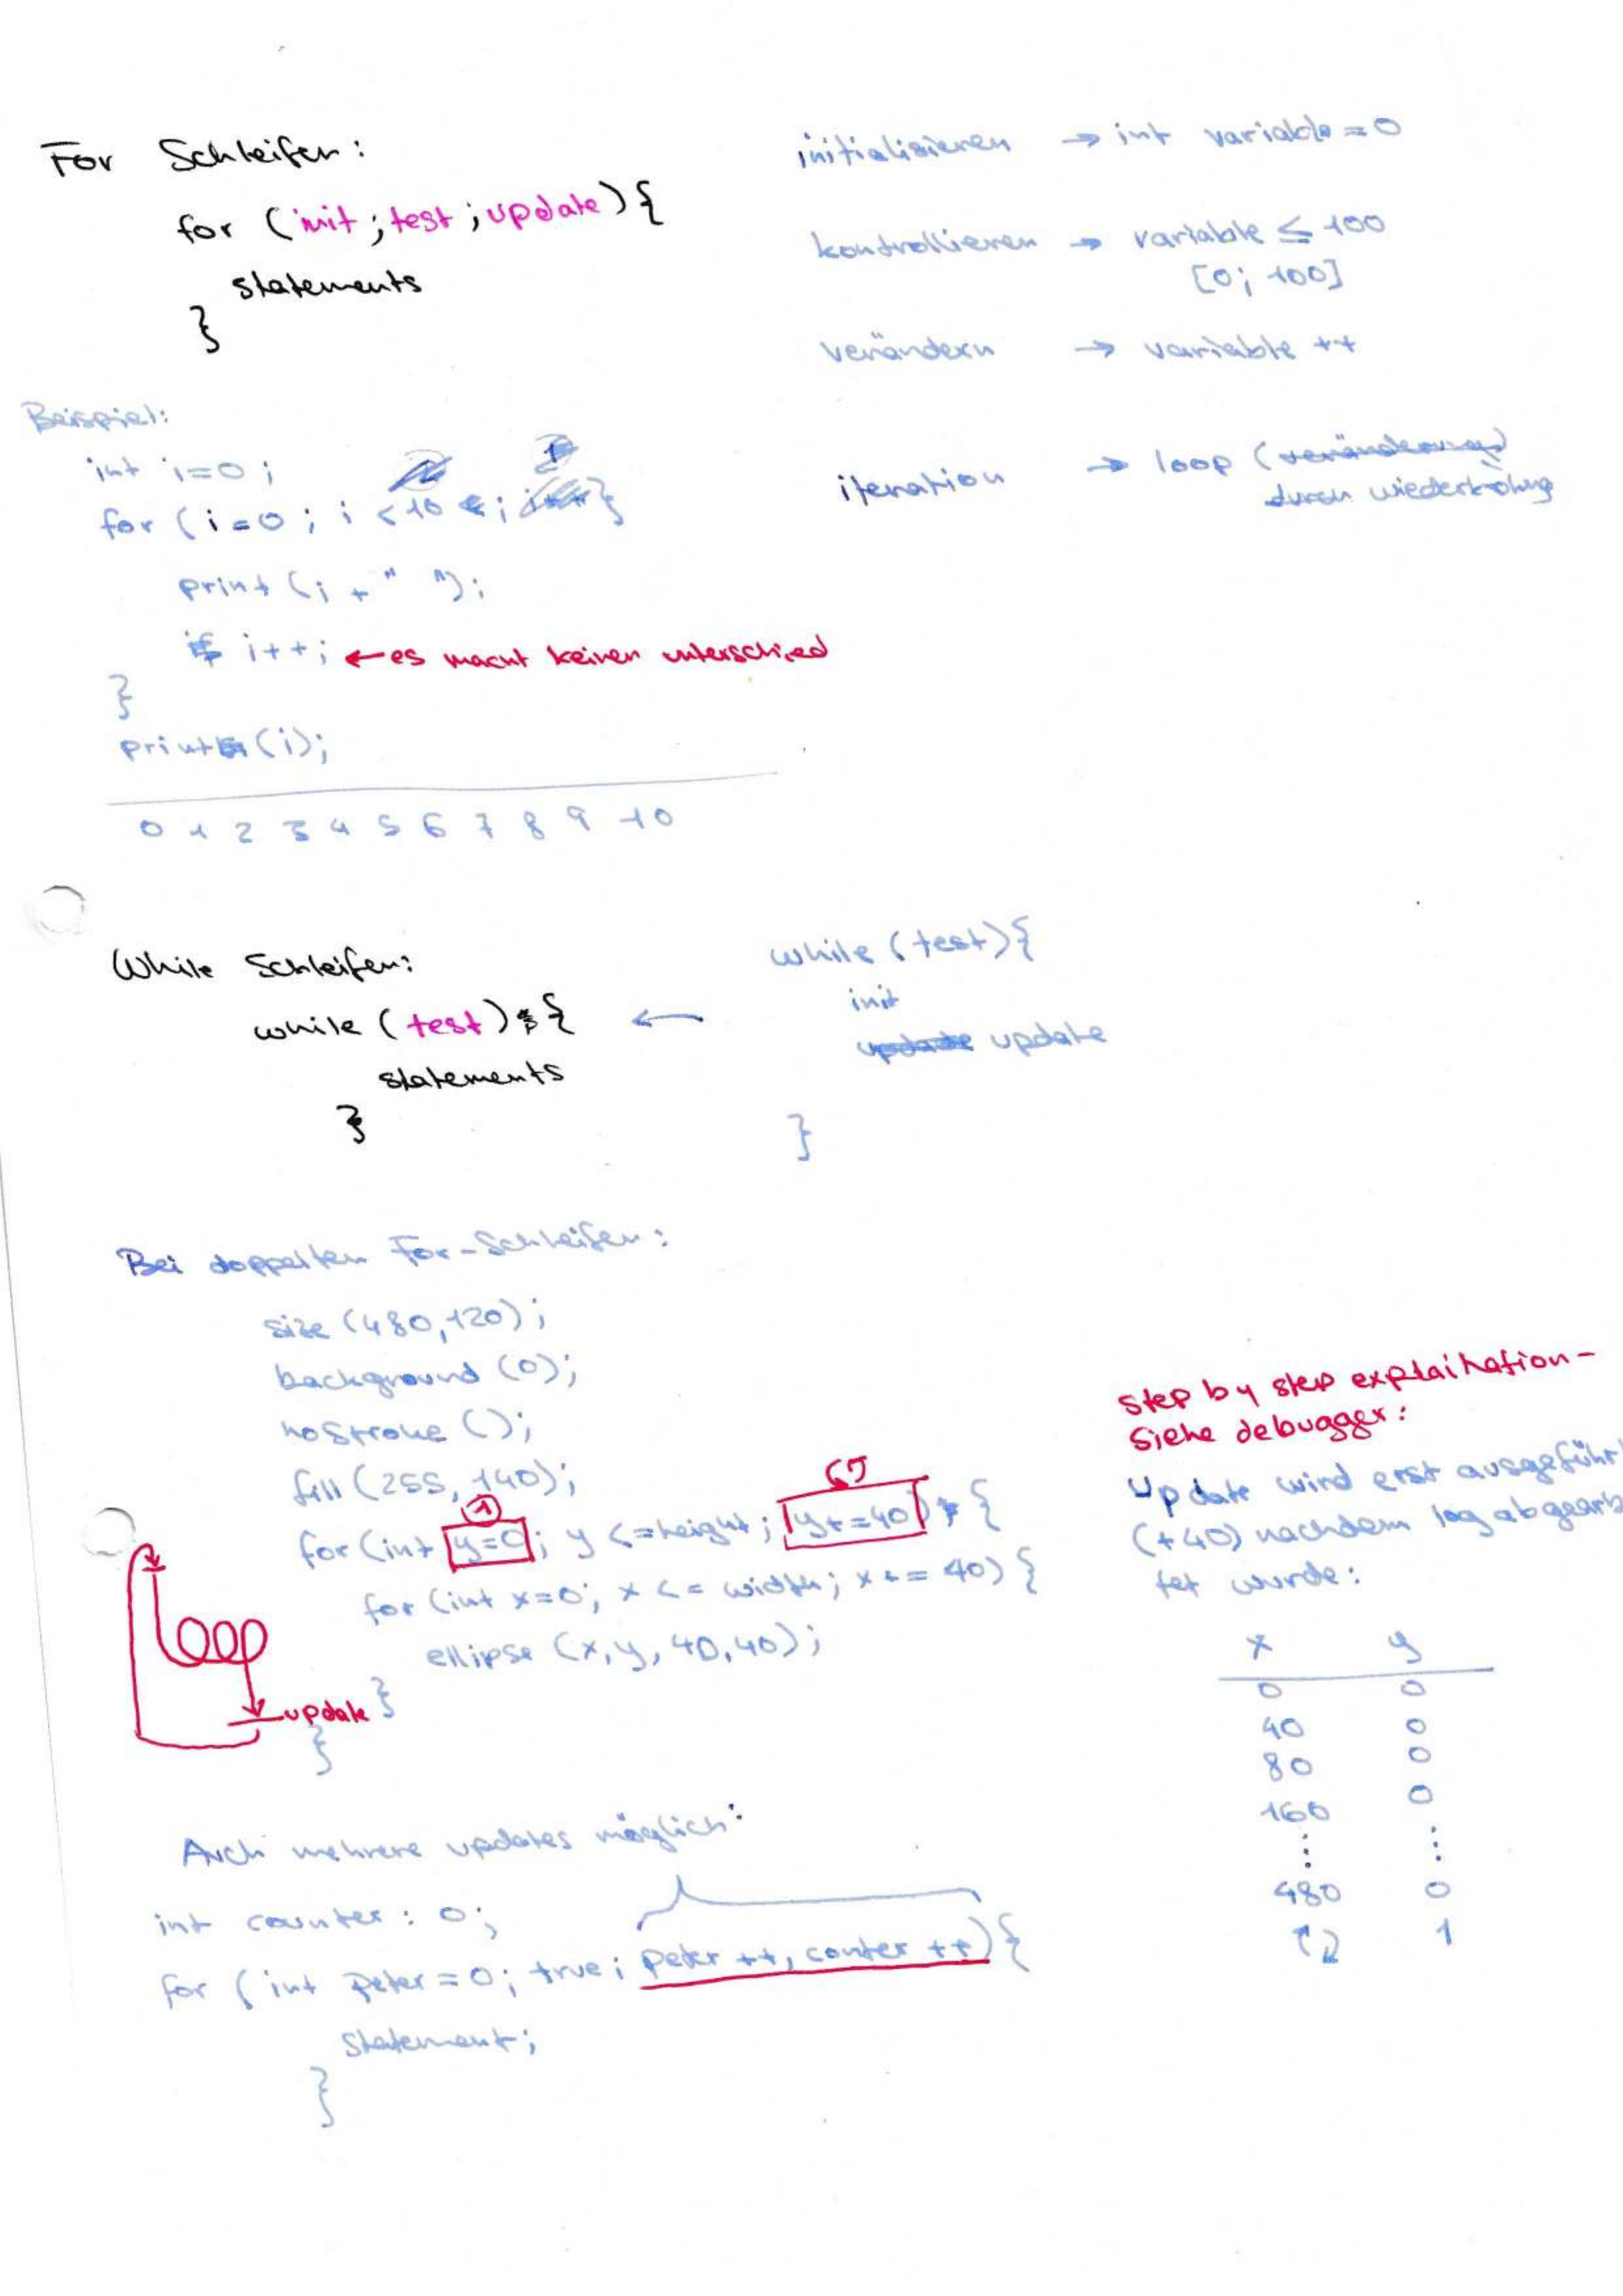 For Schleifen:
for (init; test; update) {
statements
}
initialisieren → int variable = 0
kontrollieren → variable ≤ 100
[0; 100]
verändern → variable ++
iteration → loop (veränderung)
durch wiederholung
Beispiel:
int i=0;
for (i=0; i <10 ; i++ }
print (i + " ");
i++; ← es macht keinen unterschied
}
print (i);
0 1 2 3 4 5 6 7 8 9 10
While Schleifen:
while (test) {
statements
}
←
while (test) {
init
update update
}
Bei doppelten For-Schleifen:
size (480,120);
background (0);
noStroke ();
fill (255, 140);
1
for (int y=0; y <= height; y+=40) {
for (int x=0; x <= width; x += 40) {
ellipse (x,y, 40,40);
}
}
Loop
update
step by step explaination -
siehe debugger:
Update wird erst ausgeführt
(+40) nachdem log abgearbei
tet wurde:
x y
0 0
40 0
80 0
160 0
⋮ ⋮
480 0
1
Auch mehrere updates möglich:
int counter : 0;
for (int Peter = 0; true; peter ++, conter ++) {
Statement;
}